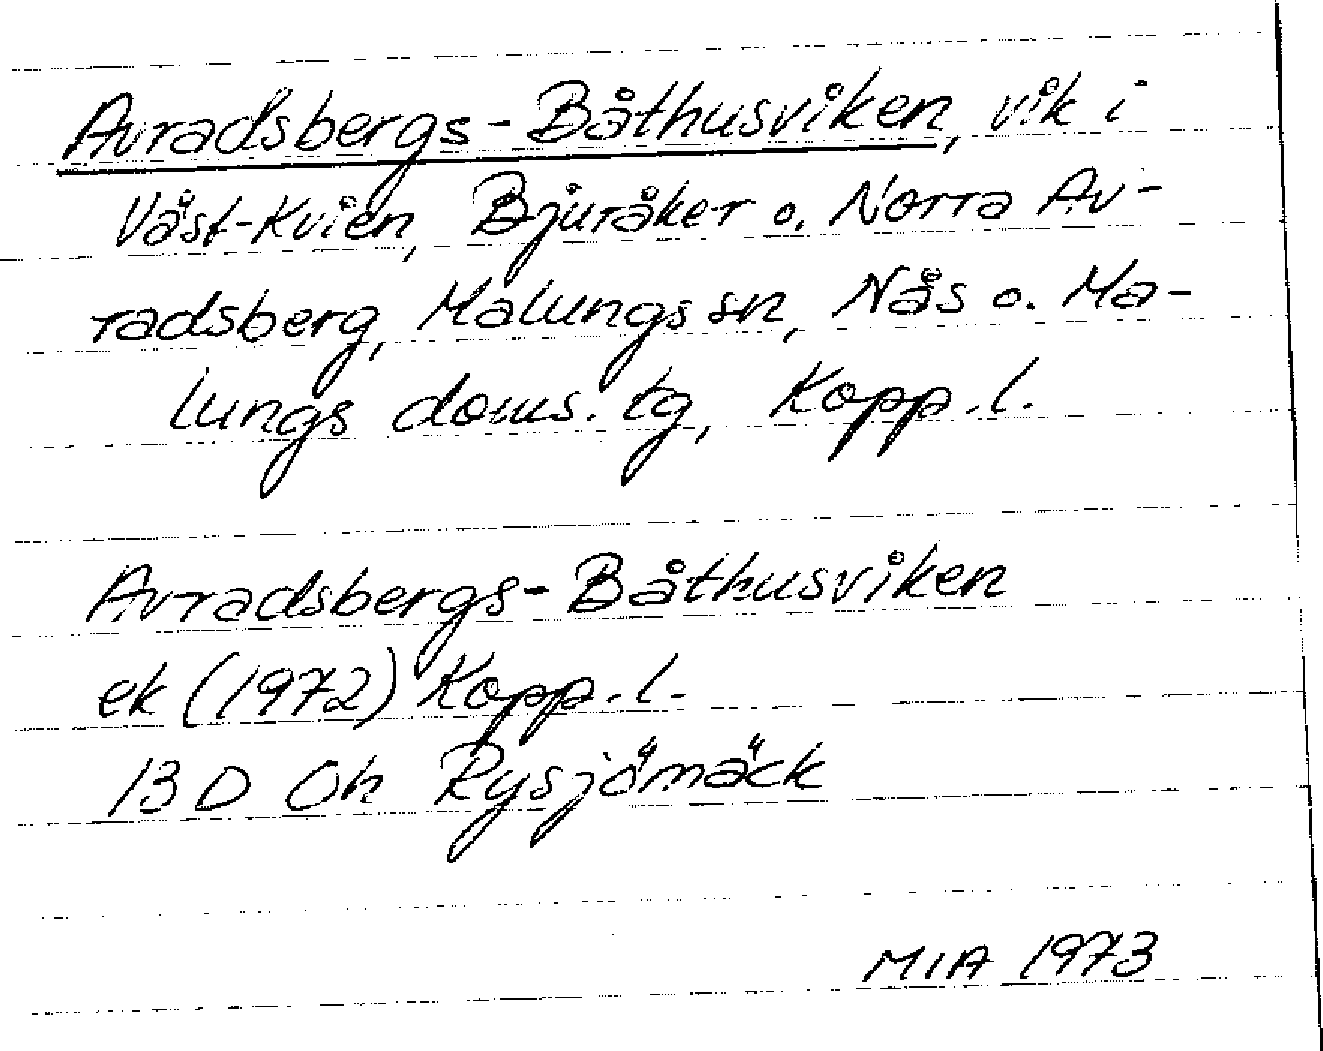 Avradsbergs-Båthusviken, vik i
Väst-Kvien, Bjuråker o. Norra Av-
radsberg, Malungs sn, Nås o. Ma-
lungs doms. tg, Kopp.l.
Avradsbergs-Båthusviken
ek (1972) Kopp.l.
13D Oh Rysjömäck
MIA 1973